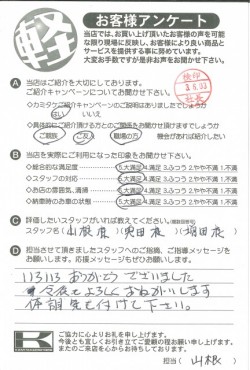 軽
お客様アンケート
当店では、お買い上げ頂いたお客様の声を可能
な限り現場に反映し、お客様により良い商品と
サービスを提供する事に努めています。
大変お手数ですが是非お声をお聞かせ下さい。
A 当店はご紹介を大切にしております。
ご紹介キャンペーンについてお聞かせ下さい。
◇カミタケご紹介キャンペーンのご説明はありましたでしょうか
はい いいえ
◇具体的にご紹介頂ける方とのご関係をお聞かせ頂けますでしょうか
ご親族 ご友人 職場の方 機会があれば紹介したい
B 当店を実際にご利用になった印象をお聞かせ下さい。
◇総合的な満足度 5.大満足 4.満足 3.ふつう 2.やや不満 1.不満
◇スタッフの対応 5.大満足 4.満足 3.ふつう 2.やや不満 1.不満
◇お店の雰囲気、清掃 5.大満足 4.満足 3.ふつう 2.やや不満 1.不満
◇納車時のお車の状態 5.大満足 4.満足 3.ふつう 2.やや不満 1.不満
C 評価したいスタッフがいれば教えてください。
スタッフ名( 山根様 )( 奥田様 )( 堀田様 )
D 担当させて頂きましたスタッフへのご指摘、ご指導メッセージを
お願いします。応援メッセージもぜひお願いします。
いろいろ ありがとうございました
今後もよろしくおねがいします
体調気を付けて下さい。
K
ご協力に心よりお礼を申し上げます。
今後とも宜しくお引き立てご愛顧の程お願い申し上げます。
またのご来店を心からお待ちしております。
担当( 山根 )